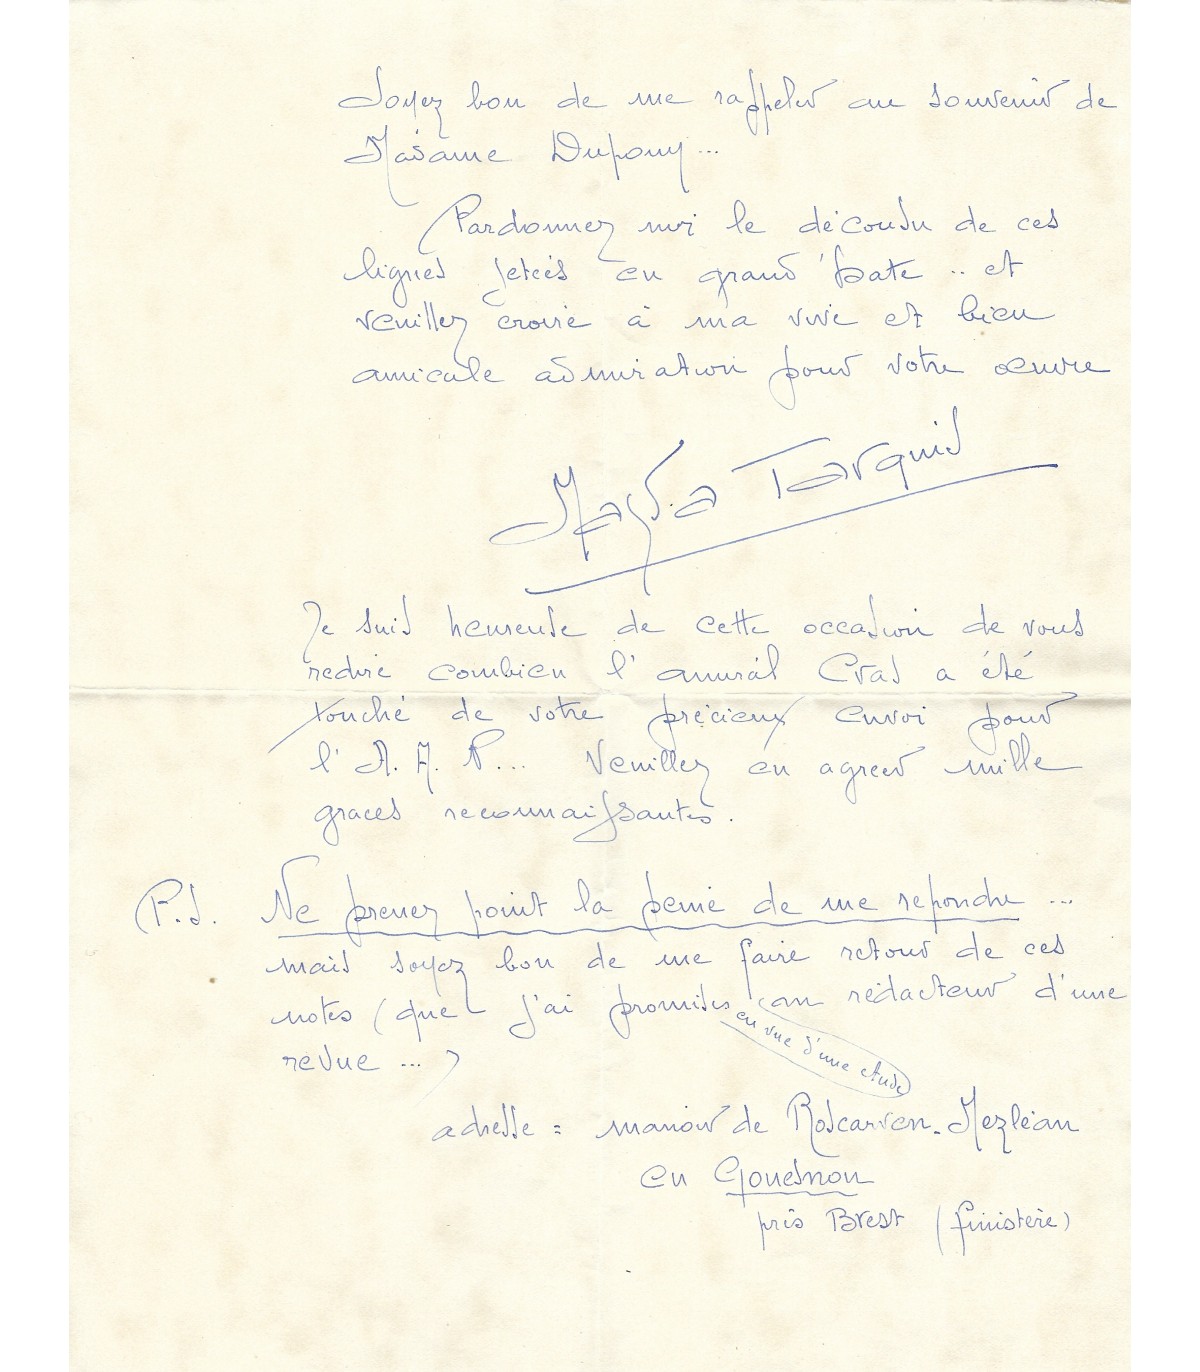 Soyez bon de me rappeler au souvenir de
Madame Dupouy...
Pardonnez moi le décousu de ces
lignes jetées en grand'hate .. et
veuillez croire à ma vive et bien
amicale admiration pour votre oeuvre
Magda Tarquis
Je suis heureuse de cette occasion de vous
redire combien l'amiral Cras a été
touché de votre précieux envoi pour
l'A. A. P... Veuillez en agreer mille
graces reconnaissantes.
P.S. Ne prenez point la peine de me repondre ...
mais soyez bon de me faire retour de ces
notes (que j'ai promises au rédacteur d'une
en vue d'une etude
revue ... )
adresse = manoir de Roscarven-Mezléan
en Gouesnou
près Brest (finistère)